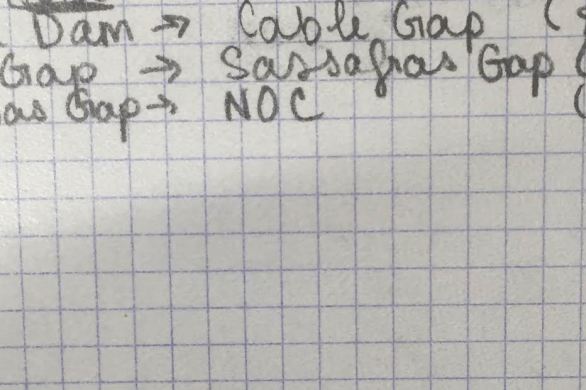 Dam → Cable Gap (
Gap → Sassafras Gap (
as Gap → NOC (